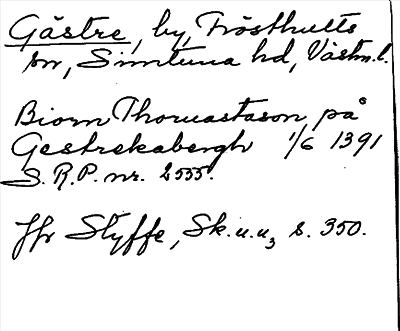 Gästre, by, Frösthults
sn, Simtuna hd, Västm.l.
Biorn Thomastason på
Gestrekabergh 1/6 1391
S.R.P. nr. 2555.
Jfr Styffe, Sk.u.u, s. 350.